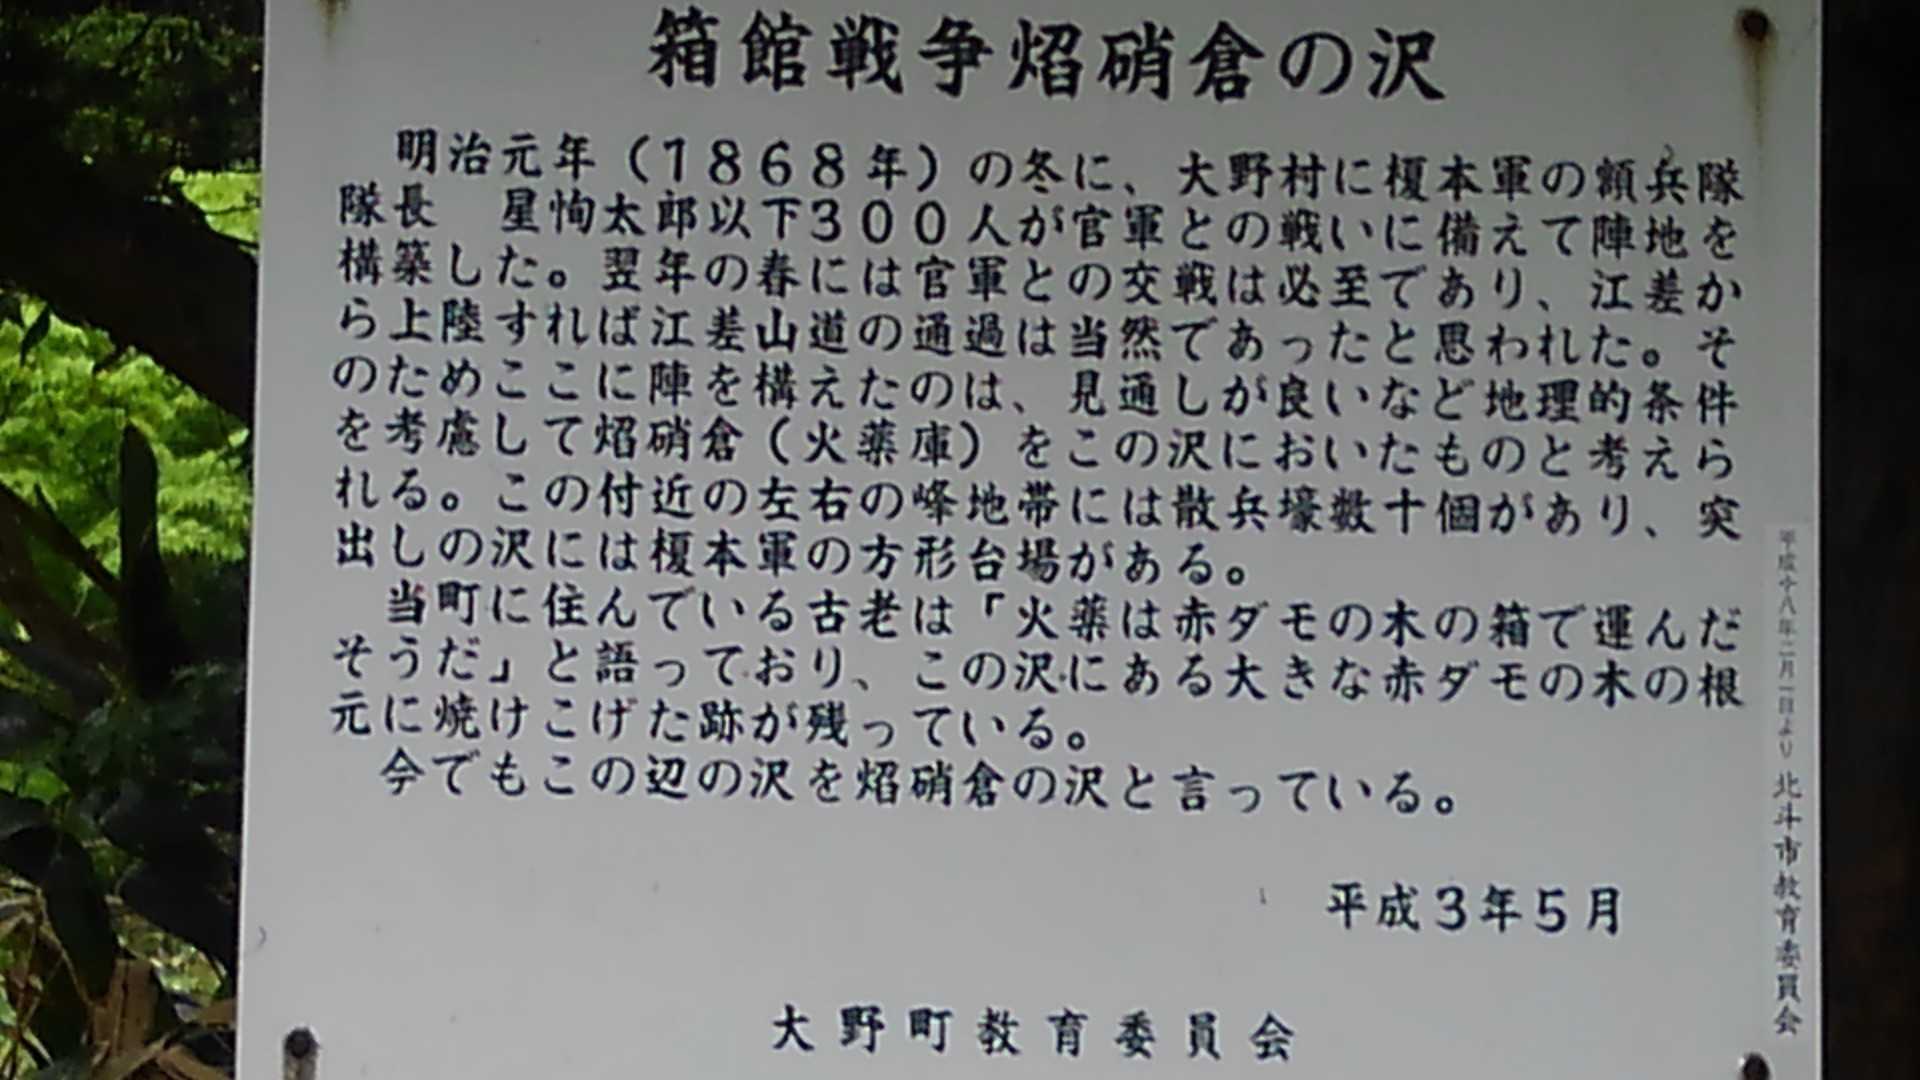 箱館戦争焰硝倉の沢
明治元年（1868年）の冬に、大野村に榎本軍の額兵隊
隊長　星恂太郎以下300人が官軍との戦いに備えて陣地を
構築した。翌年の春には官軍との交戦は必至であり、江差か
ら上陸すれば江差山道の通過は当然であったと思われた。そ
のためここに陣を構えたのは、見通しが良いなど地理的条件
を考慮して焰硝倉（火薬庫）をこの沢においたものと考えら
れる。この付近の左右の峰地帯には散兵壕数十個があり、突
出しの沢には榎本軍の方形台場がある。
当町に住んでいる古老は「火薬は赤ダモの木の箱で運んだ
そうだ」と語っており、この沢にある大きな赤ダモの木の根
元に焼けこげた跡が残っている。
今でもこの辺の沢を焰硝倉の沢と言っている。
平成3年5月
大野町教育委員会
平成十八年二月一日より 北斗市教育委員会